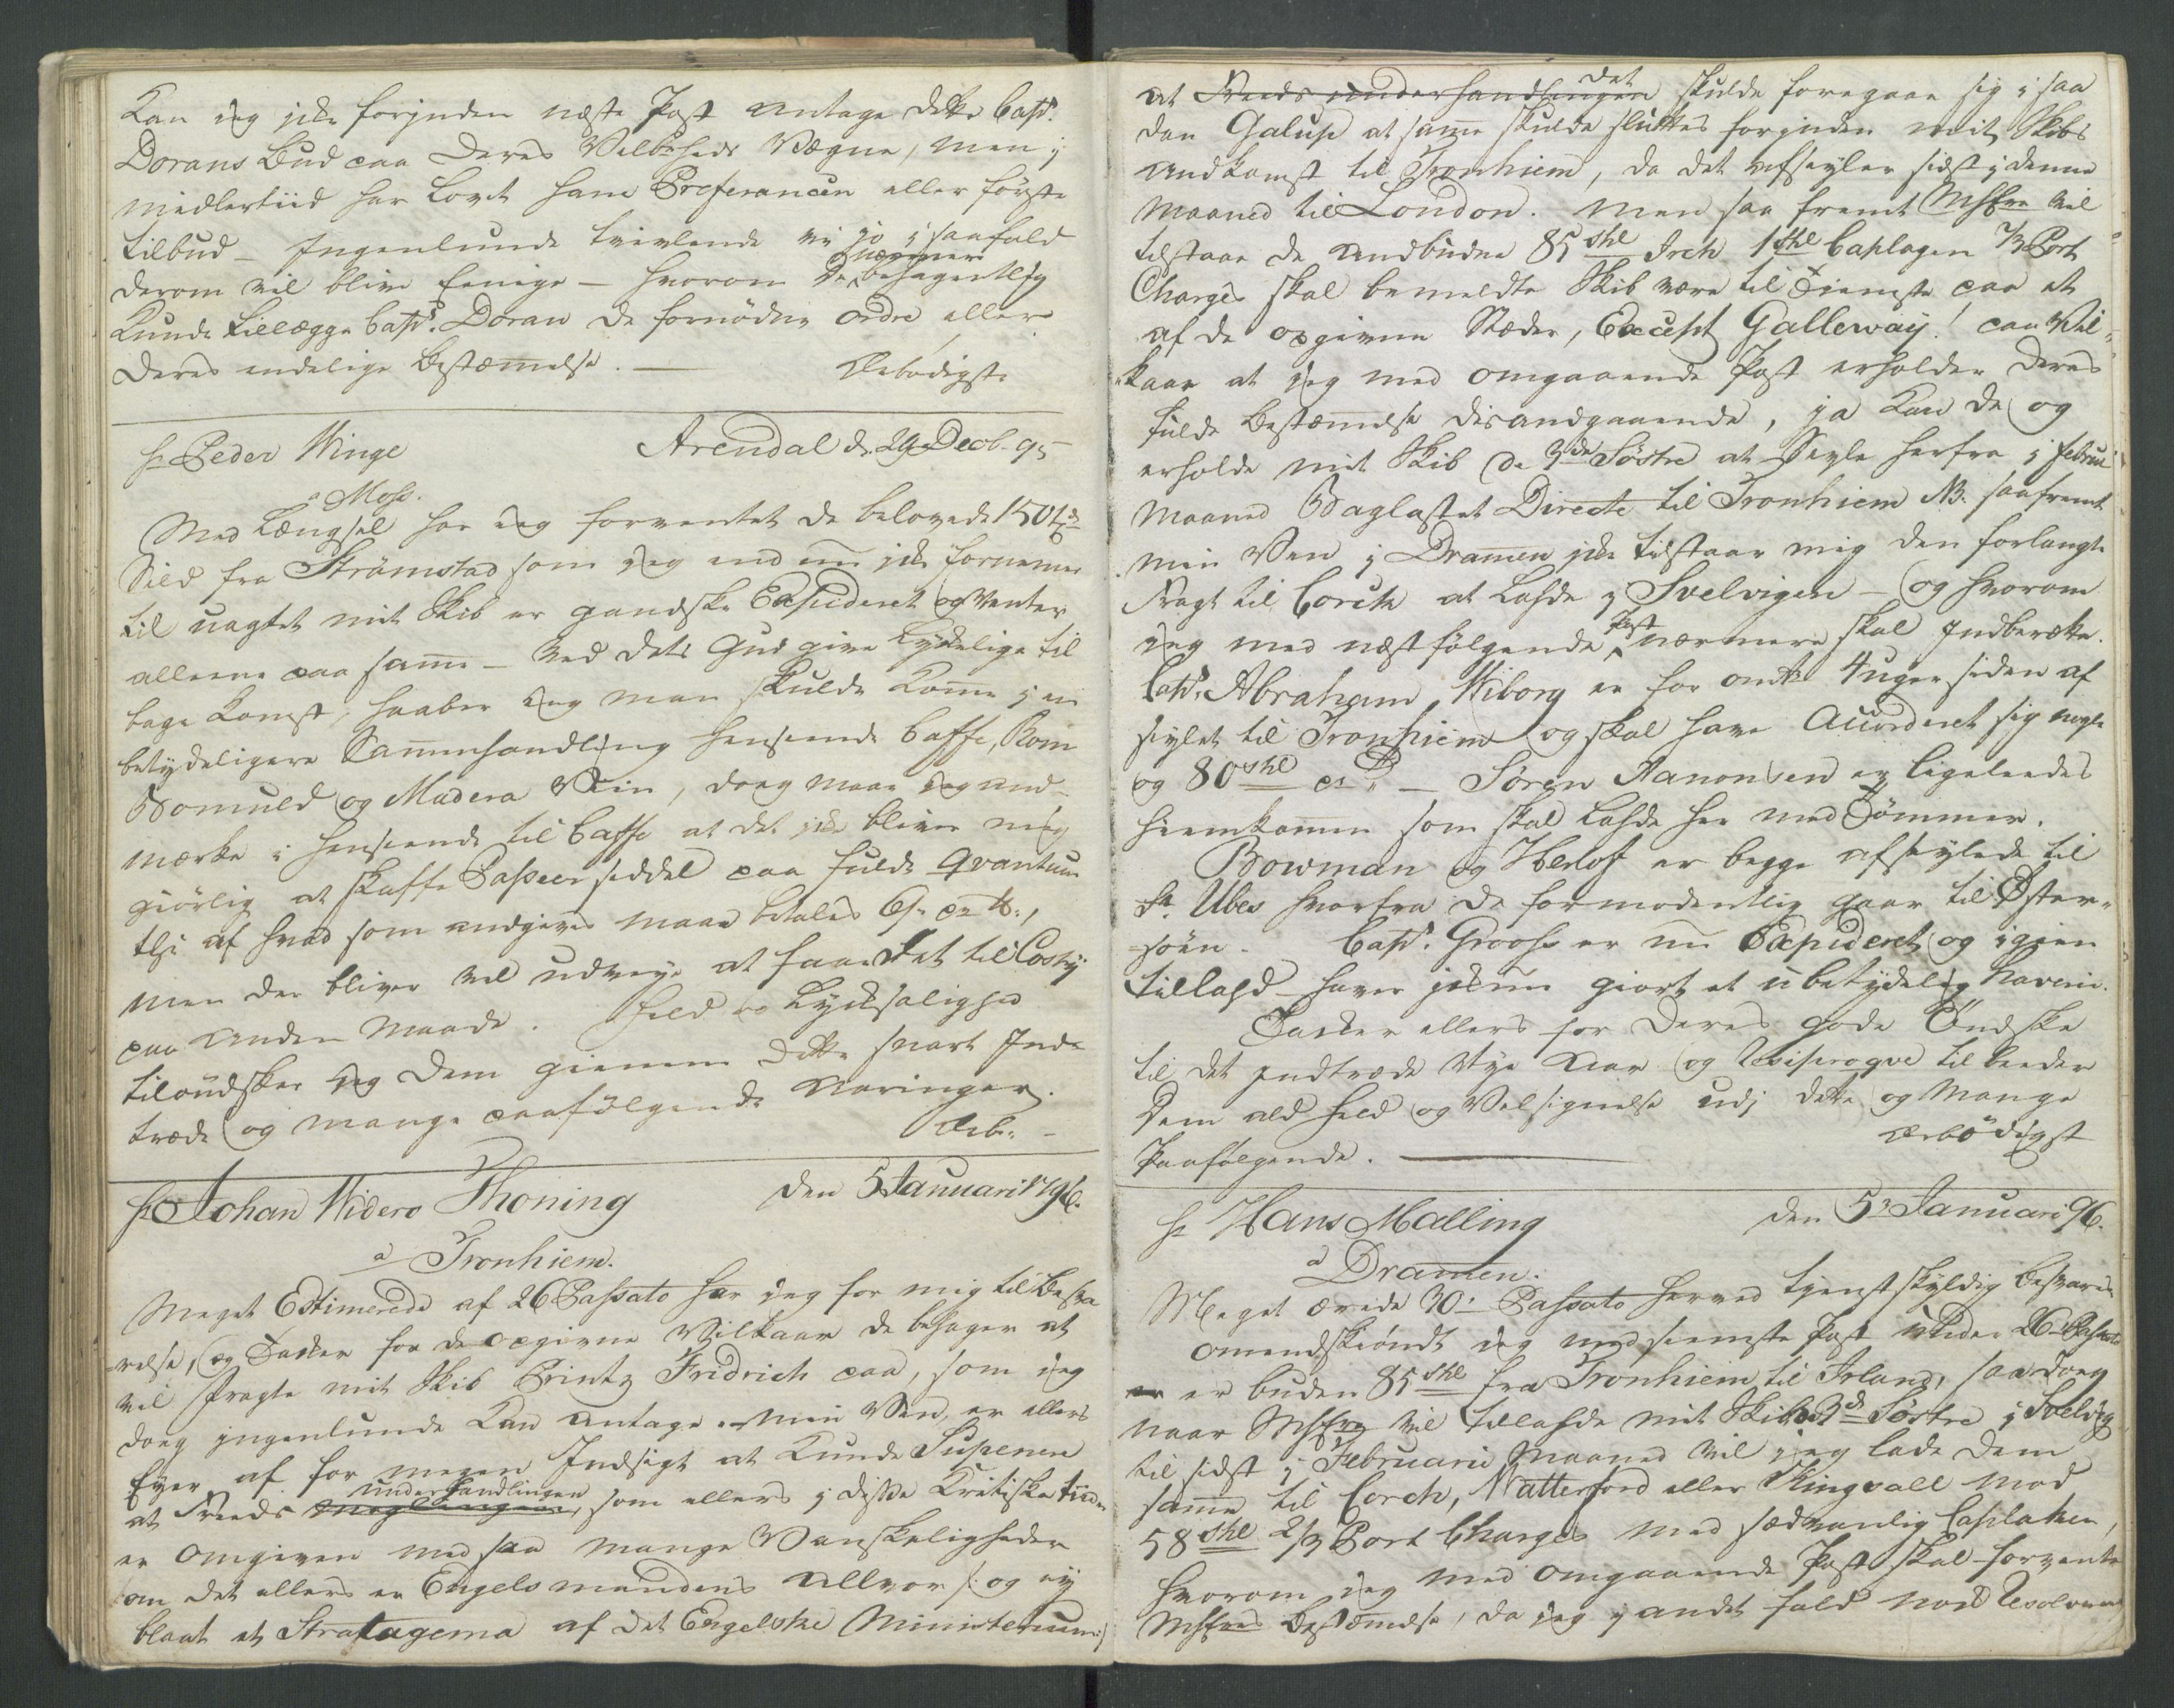 Kan jeg icke forinden næste Post antage dette Capt:
Dorans Bud paa Deres Velbrheds Vægne, men i
midlertiid har Lovet ham Preferancen eller første
tilbud - Ingenlunde tvivlende vi jo i saafald
derom vil blive Eenige - hvorom De nærmere behagentlig
Kunde tillægge Capt: Doran de fornødne Ordre eller
Deres endelige Bestæmelse. — Ærbødigste
Hr Peder Winge Arendal d. 29 Decb. 95
a Moss.
Med Længsel har jeg forventet de belovede 150 tdr
Sild fra Strømstad som jeg end nu icke fornemer
til uagtet mit Skib er gandske Expideret og venter
alleene paa same - Ved dets Gud give Lykkelige til
bage Komst, haaber jeg man skulde Kome i en
betydeligere Samenhandling henseende Caffe, Rom
Bomuld og Madera Viin, dog maae jeg an-
mærke i henseende til Caffe at det icke bliver mig
giørlig at skaffe Passeer seddel paa fulde Qvantum
thi af hvad som angives maae betales 6s. pr. lb.,
men der bliver vel udveye at faae det til Costy
paa anden Maade. Held og Lycksalighed
tilønsker jeg Dem gienem dette snart Ind-
træde og mange paafølgende Aaringer.
Ærb: -
Hr Johan Widero Thoning den 5 Januari 1796.
a Tronhiem.
Meget Estimerede af 26 Passato har jeg for mig til Besva
relse, og Tacker for de opgivne Vilkaar De behager at
vil fragte mit Skib Printz Fridrich paa, som jeg
dog ingenlunde Kan antage. Min Ven, er ellers
Eyer af for megen Indsigt at Kunde Supenere
at Freds underhandlingen, som ellers i disse Kritiske tiider
er Omgiven med saa mange Vanskeligheder
om det ellers er Engelsmandens Allvor /: og ey
blaat et Stratagema af det Engelske Ministerium :/
at Freeds underhandlingen det skulde foregaae sig i saa
dan Galup at same skulde sluttes forinden mit Skibs
Ankomst til Tronhiem, da det afseyler sidst i denne
Maaned til London. Men saa fremt MhHre vil
tilstaae de anbudne 85 shl Irch 1 shl Caplagen ⅔ Port
Charges skal bemeldte Skib være til Tieneste paa et
af de opgivne Stæder, Except Galleway! paa Vil-
kaar at jeg med omgaaende Post erholder Deres
fulde Bestæmelse desangaaende, ja Kan De og
erholde mit Skib de 3de Søstre at Seyle herfra i Februi
Maaned Baglastet Directe til Tronhiem NB. saafremt
min Ven i Dramen icke tilstaar mig den forlangte
Fragt til Corck at Lasde i Svelvigen - og hvorom
jeg med næstfølgende Post nærmere skal Indberette.
Capt. Abraham Wiborg er for omtr 4 uger siden af
seylet til Tronhiem og skal have Accorderet sig nogle
og 80 shl — Søren Aanonsen er ligeleedes
hiemkommen som skal Lasde her med Tømmer.
Bowman og Wenof er begge afseylede til
St. Ubes hvorfra de formodentlig gaar til Øster-
søen. Capt. Groosh er nu Expideret og igien
tillasd - haver icke giort et ubetydelig Haverie.
Tacker ellers for Deres gode Ønske
til det indtræde Nye Aar og Resiproqve til beeder
Dem ald Held og Velsignelse udi dette og Mange
Paafølgende. — Ærbødigst
Hr Hans Malling den 5 Januari 96.
a Dramen.
Meget ærede 30 Passato herved tienstskyldig besvares
omendskiøndt jeg med seeneste Post under 26 Passato
er buden 85 shl fra Tronhiem til Irland, saa dog
naar MhHre vil tillasde mit Skib de 3de Søstre i Svelvig
til sidst i Februarii Maaned vil jeg lade Dem
same til Corck, Watterford eller Kingsall mod
58 shl 2/3 Port Charges med sædvanlig Caplaken,
hvorom jeg med Omgaaende Post skal forvente
MhHres Bestæmelse, da jeg i andet fald